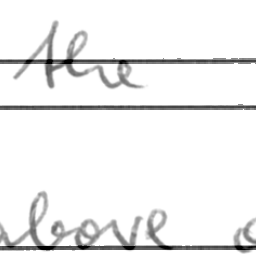 the
above